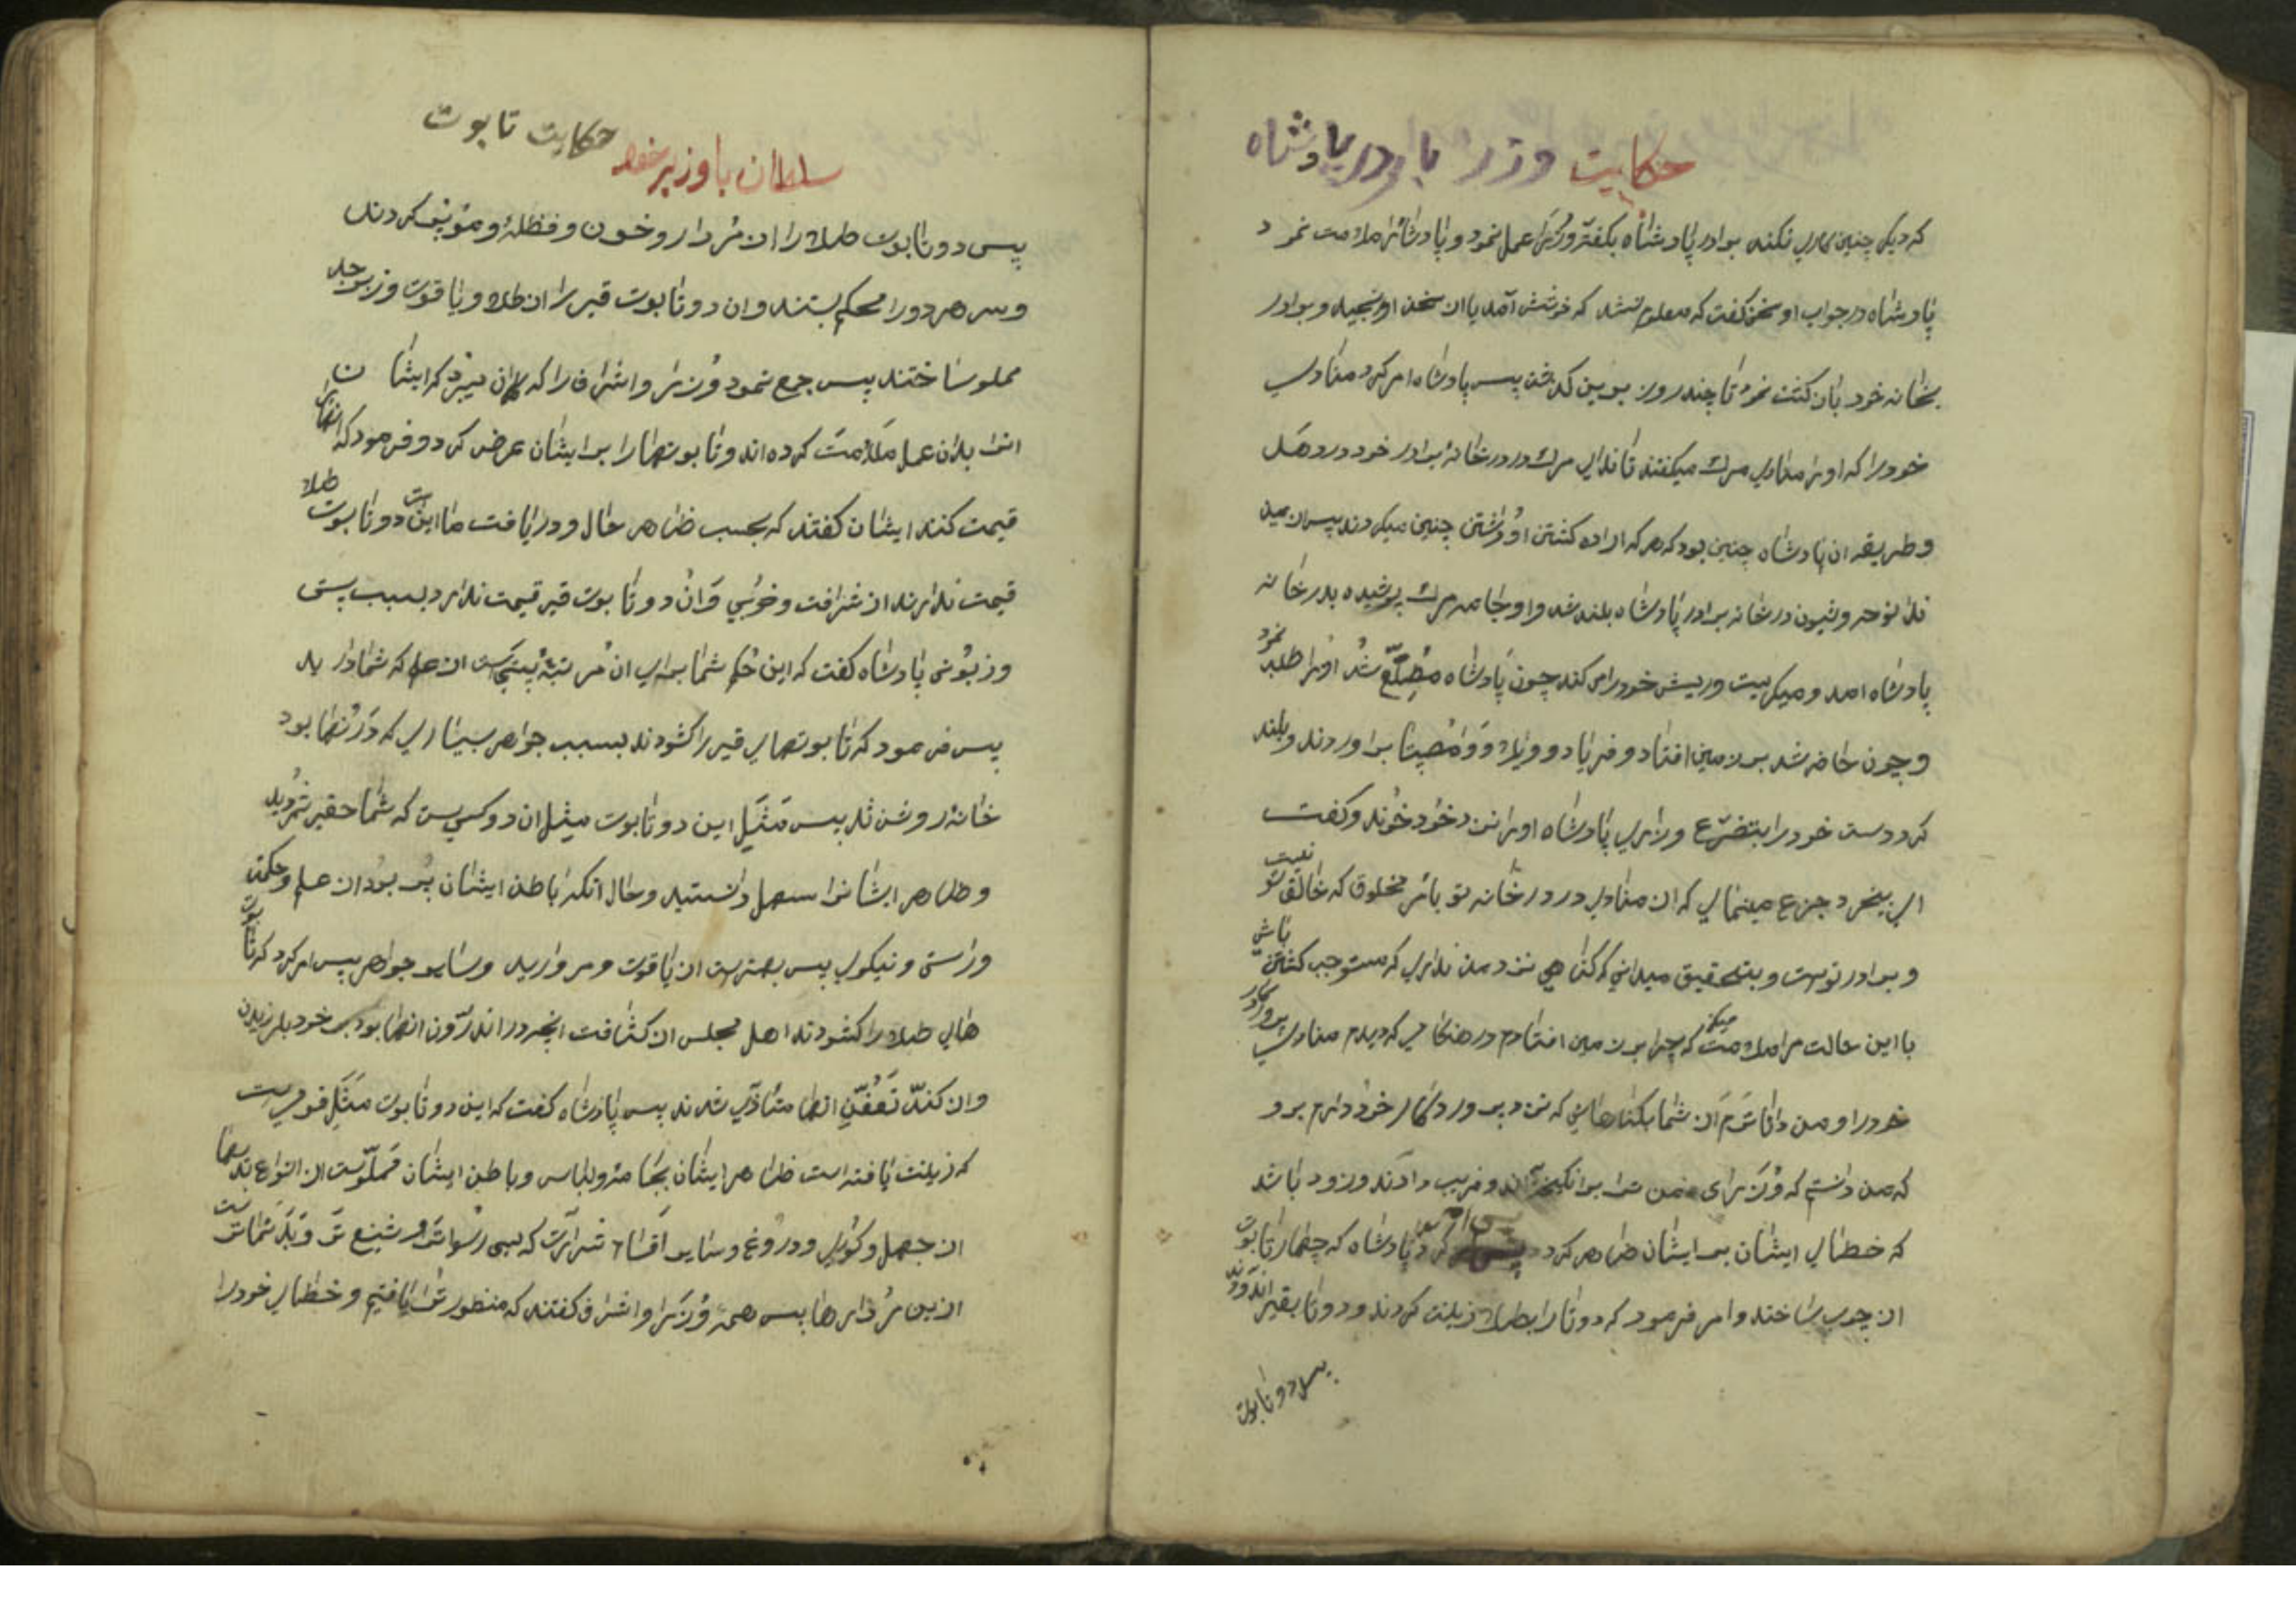 حکایت وزرا با برادر پادشاه
که دیگر چنین کاری نکند برادر پادشاه بگفتهٔ وزرا عمل نمود و پادشاه را ملامت نمود
پادشاه در جواب او سخن گفت که معلوم نشد که خوشش آمد یا از سخن او رنجید و برادر
بخانه خود بازگشت نمود تا چند روز برین گذشت پس پادشاه امر کرد منادی
خود را که او را منادی مرگ میگفتند تا ندای مرگ در در خانهٔ برادر خود در دهد
و طریقه آن پادشاه چنین بود که هر که اراده کشتن او داشتی چنین میکردند پس از این
ندا نوحه و شیون در خانه برادر پادشاه بلند شد و او جامه مرگ پوشیده بدر خانه
پادشاه آمد و میگریست و ریش خود را می کند چون پادشاه مطلّع شد او را طلب نمود
و چون حاضر شد بر زمین افتاد و فریاد و ویلا و وامصیبتا براوردند و بلند
کرد دست خود را بتضرّع و زاری پادشاه او را نزد خود خوند و گفت
ای بیخرد جزع مینمائی که از منادی در در خانه تو بامر مخلوقی که خالق تو نیست
و برادر توست و بتحقیق میدانی که گناهی نزد من نداری که مستوجب کشتن باشی
با این حالت مرا ملامت میکنی که چرا بر زمین افتادم در هنگامی که دیدم منادی پروردگار
خود را و من داناترم از شما بگناهانی که نزد پروردگار خود دارم برو
که من دانستم که وزرای من ترا برانگیخته‌اند و فریب داده‌اند و زود باشد
که خطای ایشان بر ایشان ظاهر گردد پس امر کرد پادشاه که چهار تابوت
از چوب ساختند و امر فرمود که دو تا را بطلا زینت کردند و دو تا بقیر اندودند
پس دو تابوت
حکایت تابوت
سلطان با وزیر خود
پس دو تابوت طلا را از مردار و خون و فضله و مو پر کردند
و سر هر دو را محکم بستند و آن دو تابوت قیر را از طلا و یاقوت و زبرجد
مملو ساختند پس جمع نمود وزرا و اشراف را که گمان میبرد که ایشان
او را بدان عمل ملامت کرده اند و تابوتها را بر ایشان عرض کرد و فرمود که اینها را
قیمت کنند ایشان گفتند که بحسب ظاهر حال و دریافت ما این دو تابوت طلا
قیمت ندارند از شرافت و خوبی و آن دو تابوت قیر قیمت ندارد بسبب پستی
و زبونی پادشاه گفت که این حکم شما برای آن مرتبهٔ پستیست از علم که شما دارید
پس فرمود که تابوتهای قیر را گشودند بسبب جواهر بسیاری که در آنها بود
خانه روشن شد پس مثل این دو تابوت مثل آن دو کسیست که شما حقیر شمردید
و ظاهر ایشانرا سهل دانستید و حال آنکه باطن ایشان پر بود از علم و حکمت
و راستی و نیکوی پس بهترست از یاقوت و مروارید و سایر جواهر پس امر کرد که تابوت
های طلا را گشودند اهل مجلس از کثافت آنچه در اندرون آنها بود بر خود بلرزیدند
و از گند تعفّن آنها متاذّی شدند پس پادشاه گفت که این دو تابوت مثل قومیست
که زینت یافته است ظاهر ایشان بجامه و لباس و باطن ایشان مملوّست از انواع بدیها
از جهل و کوری و دروغ و سایر اقسام شرارت که بسی رسواتر و شنیع تر و بدنماترست
ازین مردارها پس همه وزرا و اشراف گفتند که منظور ترا یافتیم و خطای خود را